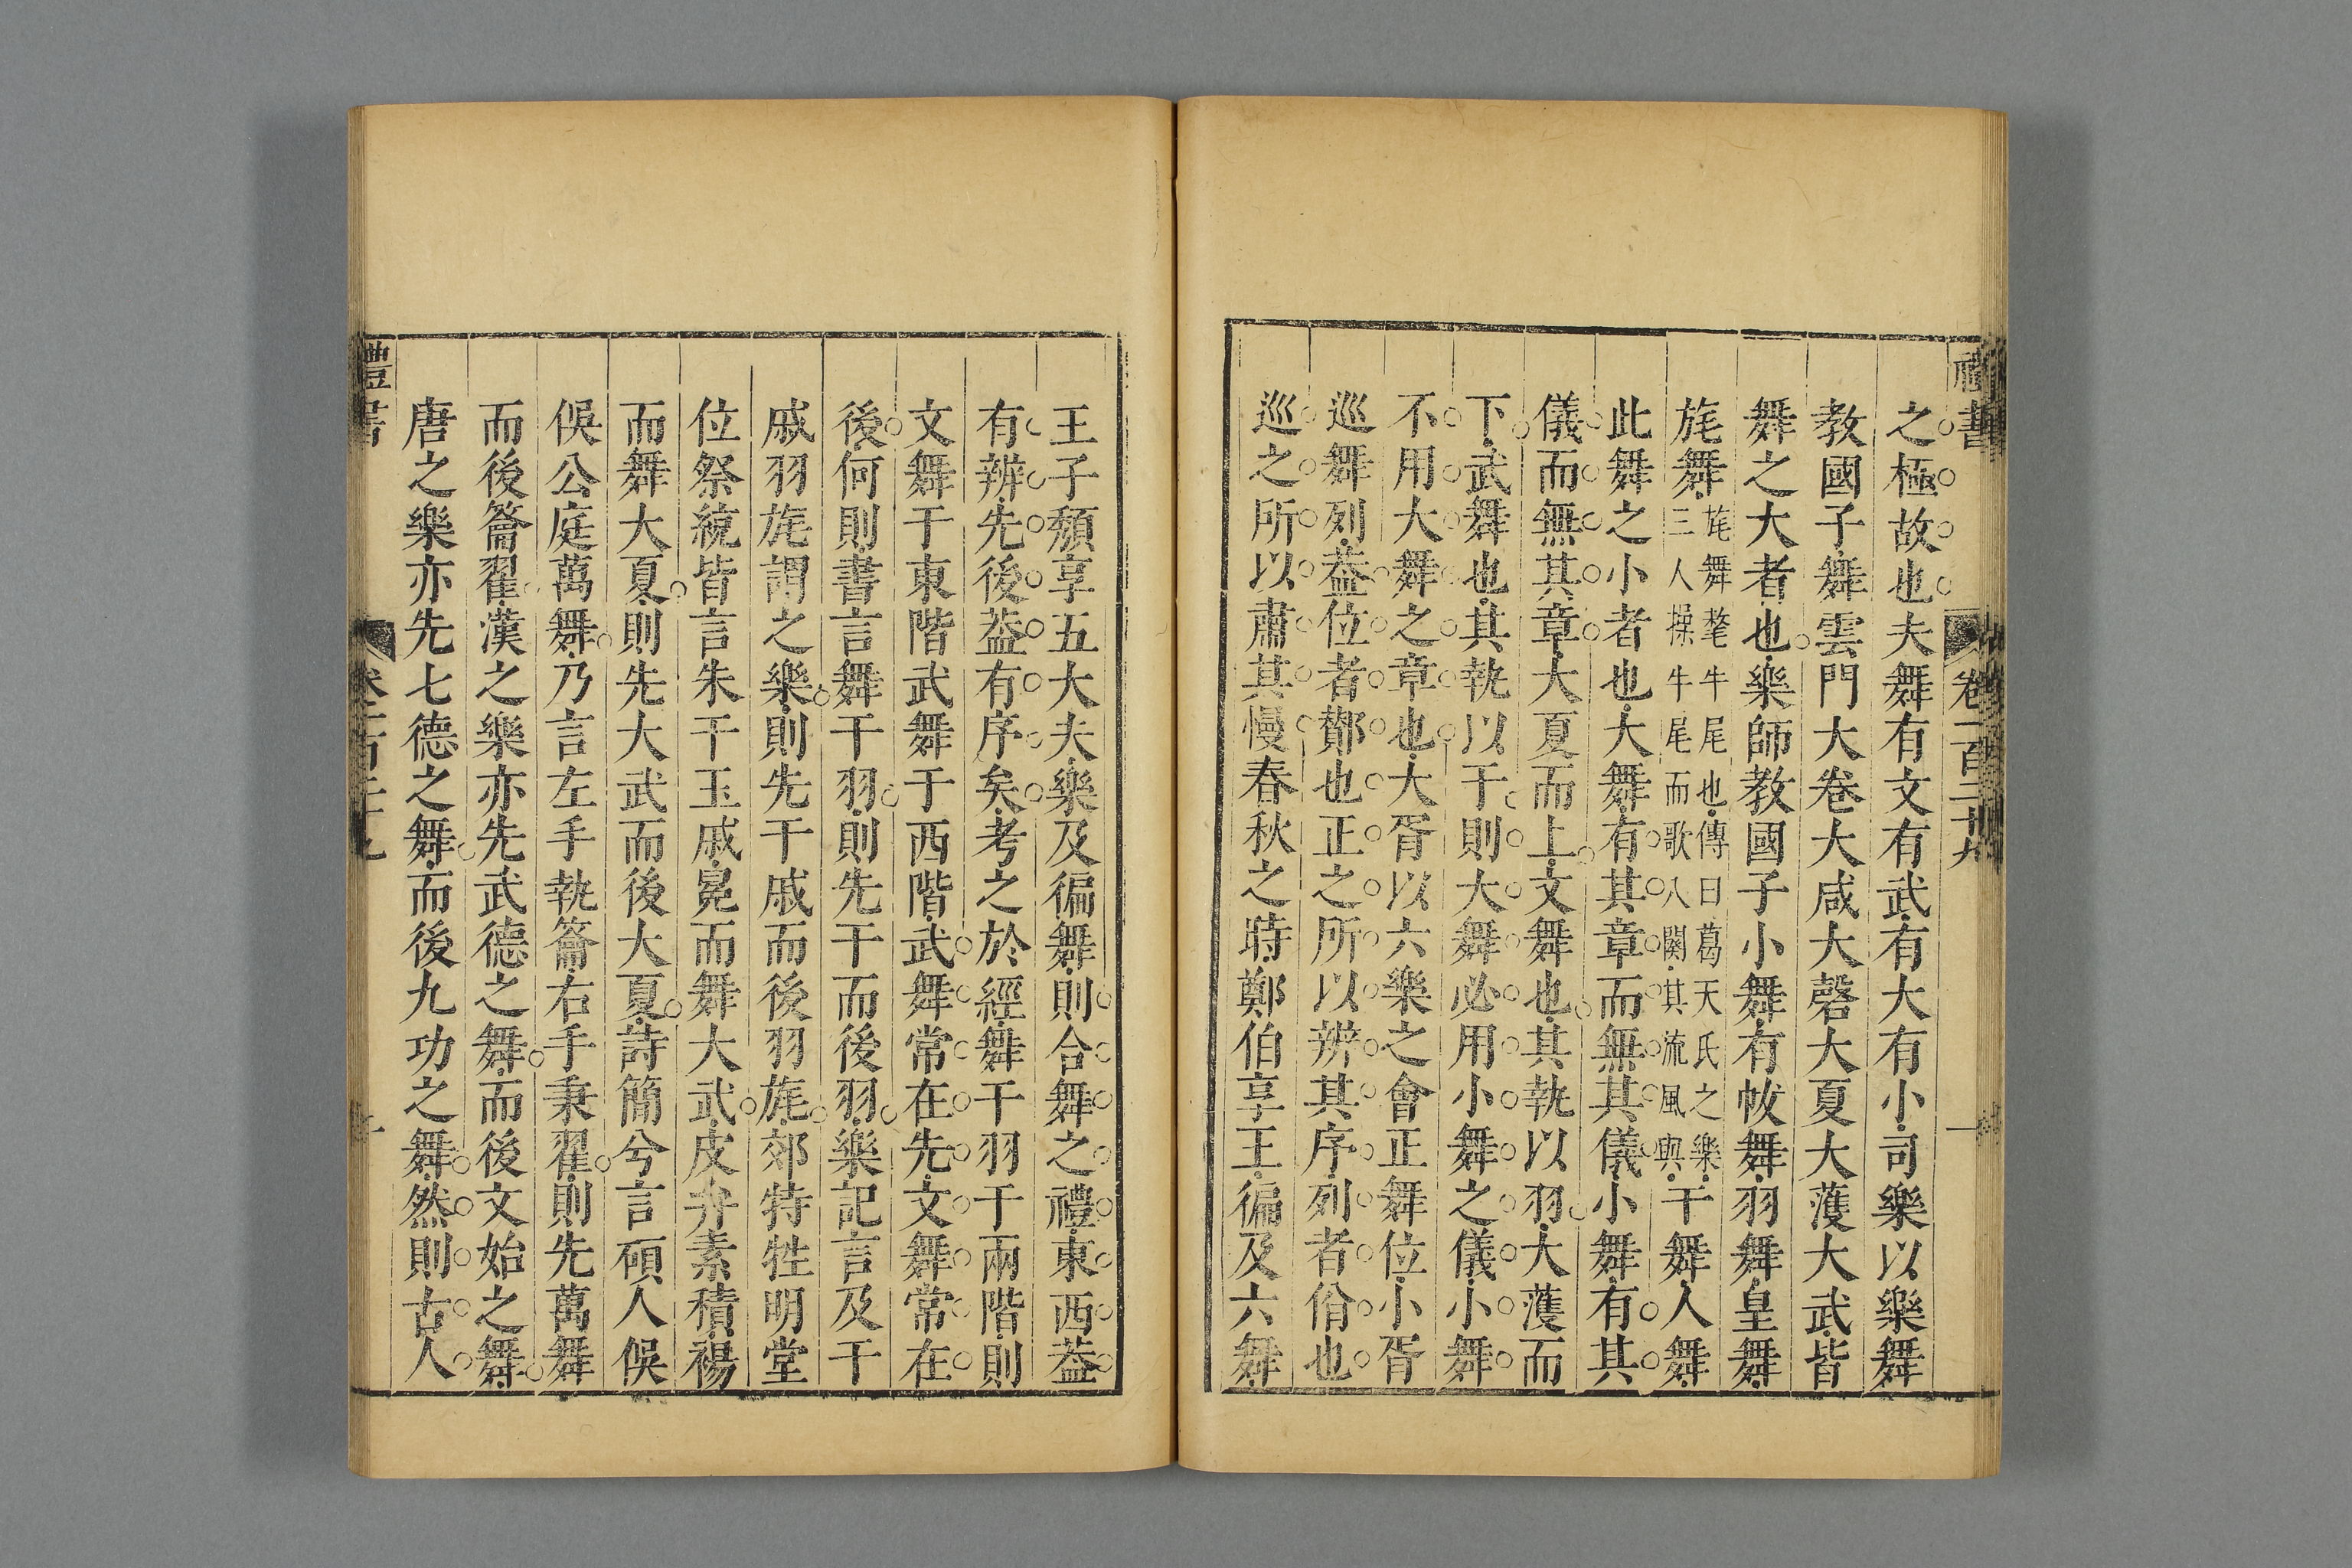 禮書
卷一百二十九
一
之極故也夫舞有文有武有大有小司樂以樂舞
教國子舞雲門大卷大咸大磬大夏大濩大武皆
舞之大者也樂師教國子小舞有帗舞羽舞皇舞
旄舞
旄舞氂牛尾也傳曰葛天氏之樂
三人操牛尾而歌八闋其流風與
干舞人舞
此舞之小者也大舞有其章而無其儀小舞有其
儀而無其章大夏而上文舞也其執以羽大濩而
下武舞也其執以干則大舞必用小舞之儀小舞
不用大舞之章也大胥以六樂之會正舞位小胥
巡舞列葢位者鄼也正之所以辨其序列者佾也
巡之所以肅其慢春秋之時鄭伯享王徧及六舞
王子頽享五大夫樂及徧舞則合舞之禮東西葢
有辨先後葢有序矣考之於經舞干羽于兩階則
文舞于東階武舞于西階武舞常在先文舞常在
後何則書言舞干羽則先干而後羽樂記言及干
戚羽旄謂之樂則先干戚而後羽旄郊特牲明堂
位祭統皆言朱干玉戚冕而舞大武皮弁素積裼
而舞大夏則先大武而後大夏詩簡兮言碩人俁
俁公庭萬舞乃言左手執籥右手秉翟則先萬舞
而後籥翟漢之樂亦先武德之舞而後文始之舞
唐之樂亦先七德之舞而後九功之舞然則古人
禮書